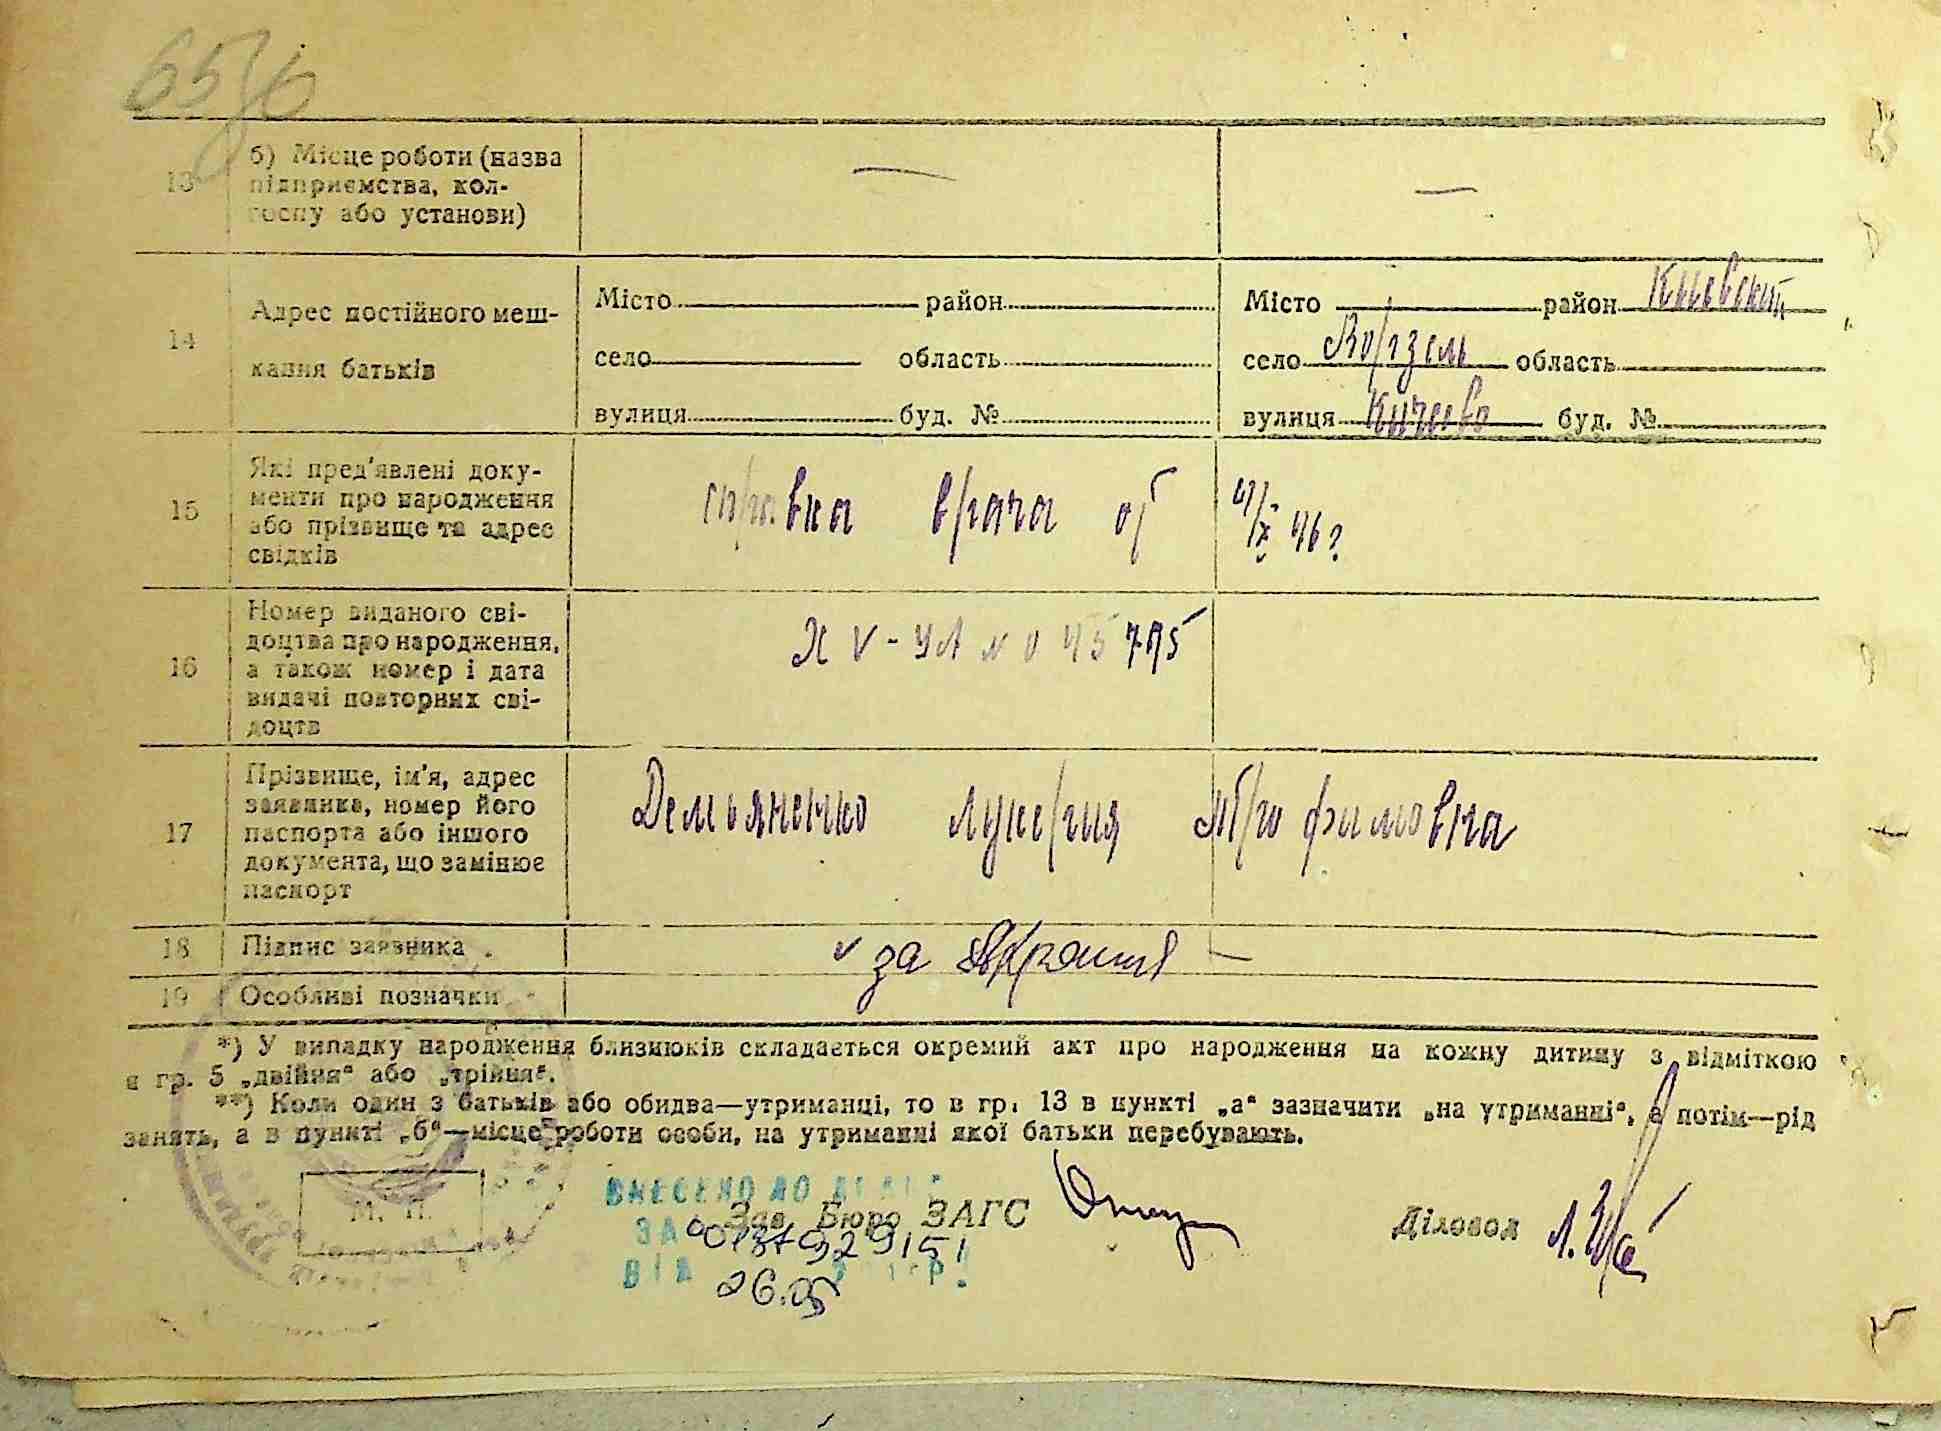 13 б) Місце роботи (назва
підприємства, кол-
госпу або установи) — —
14 Адрес постійного меш-
кання батьків
Місто район
село область
вулиця буд. №
Місто район Киевский
село Ворзель область
вулиця Кичеево буд. №
15 Які пред'явлені доку-
менти про народження
або прізвище та адрес
свідків
справка врача от
16 Номер виданого сві-
доцтва про народження,
а також номер і дата
видачі повторних сві-
доцтв
17 Прізвище, ім'я, адрес
заявника, номер його
паспорта або іншого
документа, що замінює
паспорт
Демьяненко Лукерия Трофимовна
18 Підпис заявника
за
19 Особливі позначки
*) У випадку народження близнюків складається окремий акт про народження на кожну дитину з відміткою
в гр. 5 „двійня“ або „трійня“.
**) Коли один з батьків або обидва—утриманці, то в гр. 13 в пункті „а“ зазначити „на утриманні“, а потім—рід
занять, а в пункті „б“—місце роботи особи, на утриманні якої батьки перебувають.
М. П.
ВНЕСЕНО ДО
Зав. Бюро ЗАГС
Діловод
ЗА
ВІД